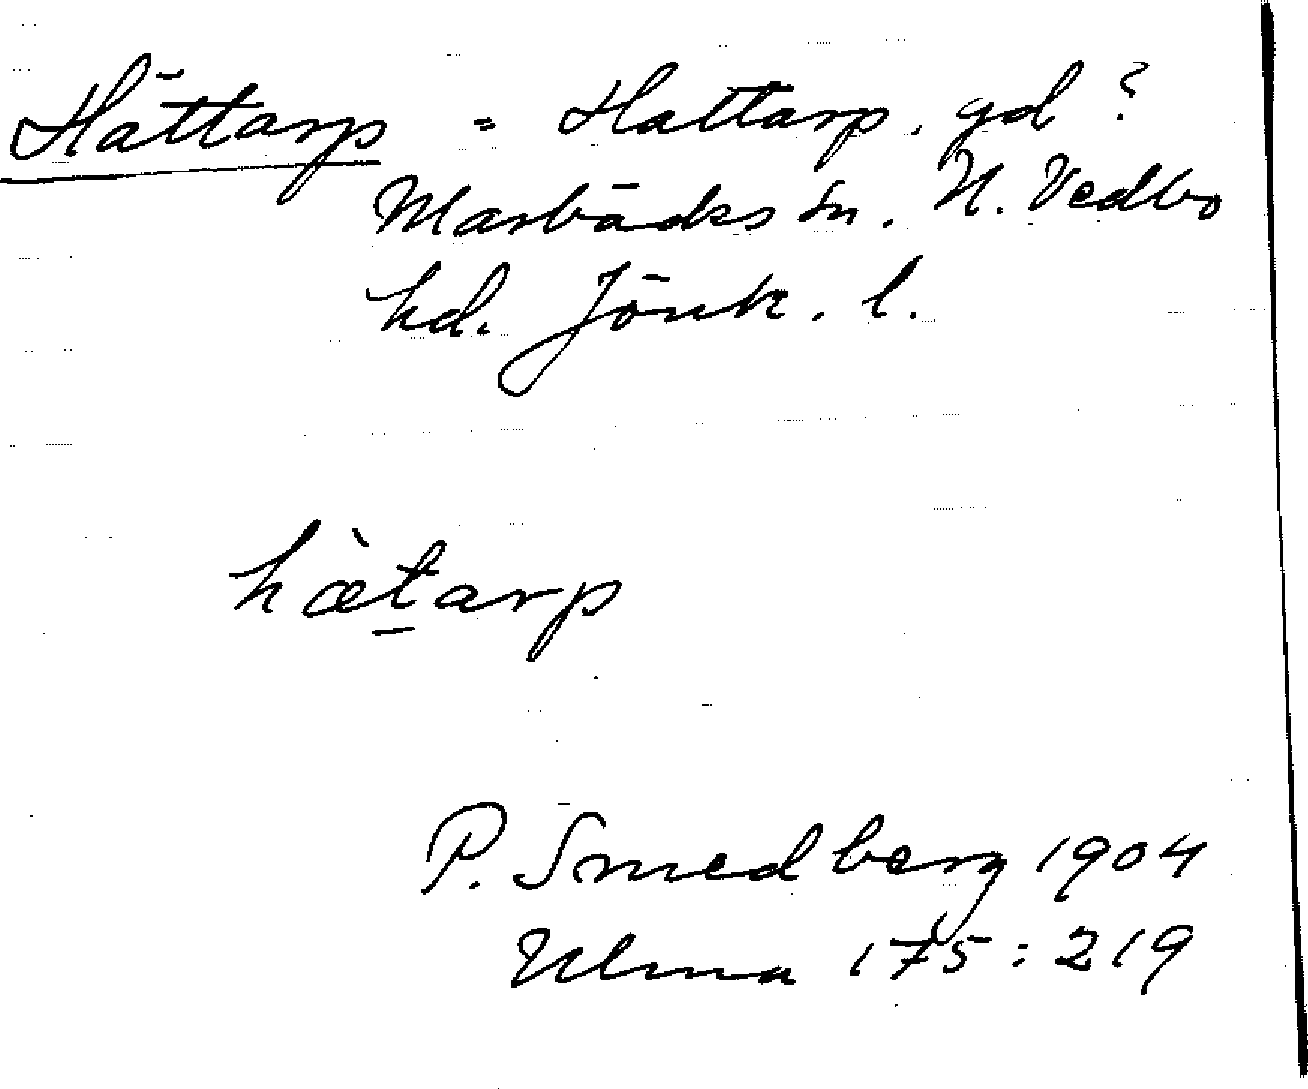 Hättarp = Hattarp, gd?
Marbäcks sn. N. Vedbo
hd. Jönk. l.
hæ̀t̠arp
P. Smedberg 1904
Ulma 175:219